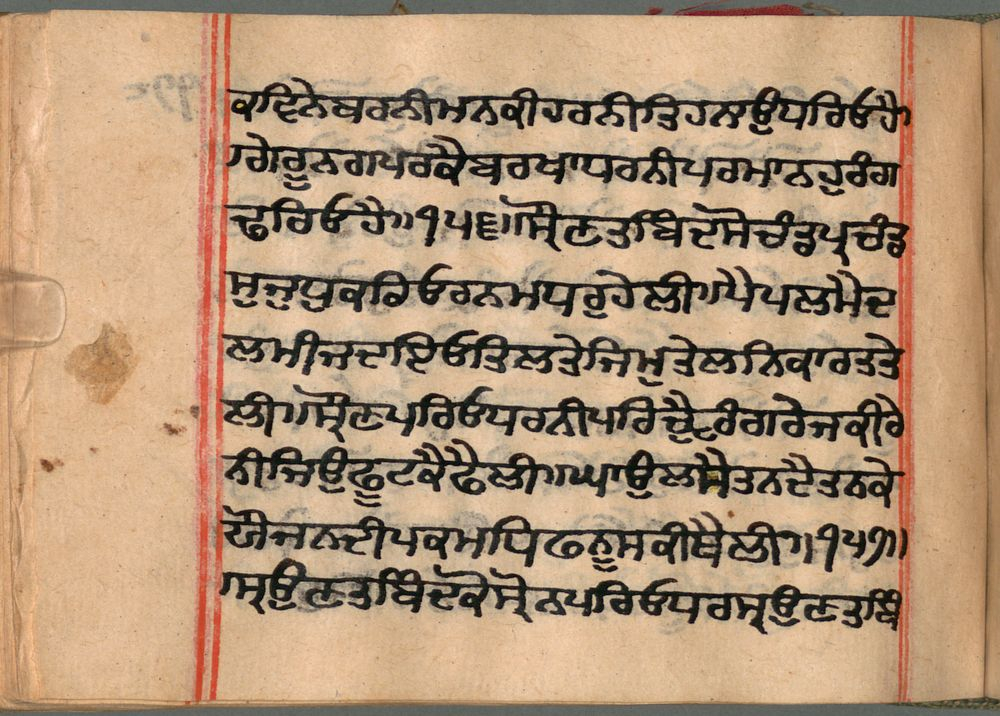 ਕਵਿਨੇਬਰਨੀਮਨਕੀਹਰਨੀਤਿਹਨਾਉਪਰਿਓਹੈ॥
ਗੇਰੂਨਗਪਰਕੈਬਰਖਾਧਰਨੀਪਰਮਾਨਹੁਰੰਗ
ਢਰਿਓਹੈ॥੧੫੬॥ਸ੍ਰੋਣਤਬਿੰਦਸੋਚੰਡਪ੍ਰਚੰਡ
ਸੁਜੁਧੁਕਰਿਓਰਨਮਧਰੁਹੇਲੀ॥ਪੈਪਲਮੈਦ
ਲਮੀਜਦਇਓਤਿਲਤੇਜਿਮੁਤੇਲਨਿਕਾਰਤਤੇ
ਲੀ॥ਸ੍ਰੋਣਪਰਿਓਧਰਨੀਪਰਿਚ੍ਵੈਰੰਗਰੇਜਕੀਰੇ
ਨੀਜਿਉਫੂਟਕੈਫੈਲੀ॥ਘਾਉਲਸੈਤਨਦੈਤਨਕੇ
ਖੋਜਨਦੀਪਕਮਧਿਫਨੂਸਕੀਥੈਲੀ॥੧੫੭॥
ਸ੍ਰਉਣਤਬਿੰਦਕੋਸ੍ਰੋਨਪਰਿਓਧਰਸ੍ਰਉਣਤਬਿੰ